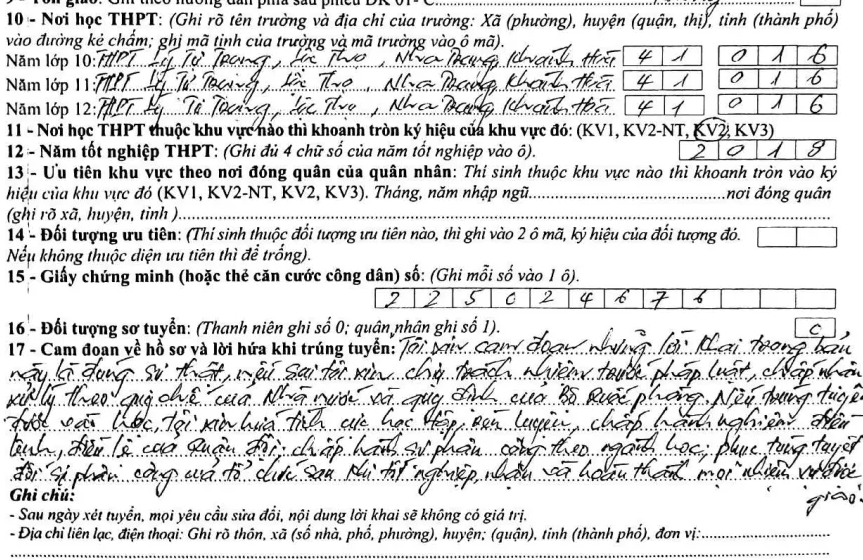 9 - Tôn giáo: Ghi theo hướng dẫn phía sau phiếu ĐK 01- C
10 - Nơi học THPT: (Ghi rõ tên trường và địa chỉ của trường: Xã (phường), huyện (quận, thị), tỉnh (thành phố)
vào đường kẻ chấm; ghi mã tỉnh của trường và mã trường vào ô mã).
Năm lớp 10: THPT Lý Tự Trọng, Lộc Thọ, Nha Trang, Khánh Hòa 4 1 0 1 6
Năm lớp 11: THPT Lý Tự Trọng, Lộc Thọ, Nha Trang, Khánh Hòa 4 1 0 1 6
Năm lớp 12: THPT Lý Tự Trọng, Lộc Thọ, Nha Trang, Khánh Hòa 4 1 0 1 6
11 - Nơi học THPT thuộc khu vực nào thì khoanh tròn ký hiệu của khu vực đó: (KV1, KV2-NT, KV2, KV3)
12 - Năm tốt nghiệp THPT: (Ghi đủ 4 chữ số của năm tốt nghiệp vào ô). 2 0 1 8
13 - Ưu tiên khu vực theo nơi đóng quân của quân nhân: Thí sinh thuộc khu vực nào thì khoanh tròn vào ký
hiệu của khu vực đó (KV1, KV2-NT, KV2, KV3). Tháng, năm nhập ngũ.....nơi đóng quân
(ghi rõ xã, huyện, tỉnh ).....
14 - Đối tượng ưu tiên: (Thí sinh thuộc đối tượng ưu tiên nào, thì ghi vào 2 ô mã, ký hiệu của đối tượng đó.
Nếu không thuộc diện ưu tiên thì để trống).
15 - Giấy chứng minh (hoặc thẻ căn cước công dân) số: (Ghi mỗi số vào 1 ô).
2 2 5 0 2 4 6 7 6
16 - Đối tượng sơ tuyển: (Thanh niên ghi số 0; quân nhân ghi số 1).
17 - Cam đoan về hồ sơ và lời hứa khi trúng tuyển: Tôi xin cam đoan những lời khai trong bản
này là đúng sự thật, nếu sai tôi xin chịu trách nhiệm trước pháp luật, chấp nhận
xử lý theo quy chế của Nhà nước và quy định của Bộ Quốc phòng. Nếu trúng tuyển
được vào học, tôi xin hứa tích cực học tập, rèn luyện, chấp hành nghiêm điều
lệnh, điều lệ của Quân đội; chấp hành sự phân công theo ngành học; phục tùng tuyệt
đối sự phân công của tổ chức sau khi tốt nghiệp, nhận và hoàn thành mọi nhiệm vụ được
giao.
Ghi chú:
- Sau ngày xét tuyển, mọi yêu cầu sửa đổi, nội dung lời khai sẽ không có giá trị.
- Địa chỉ liên lạc, điện thoại: Ghi rõ thôn, xã (số nhà, phố, phường), huyện; (quận), tỉnh (thành phố), đơn vị:.....